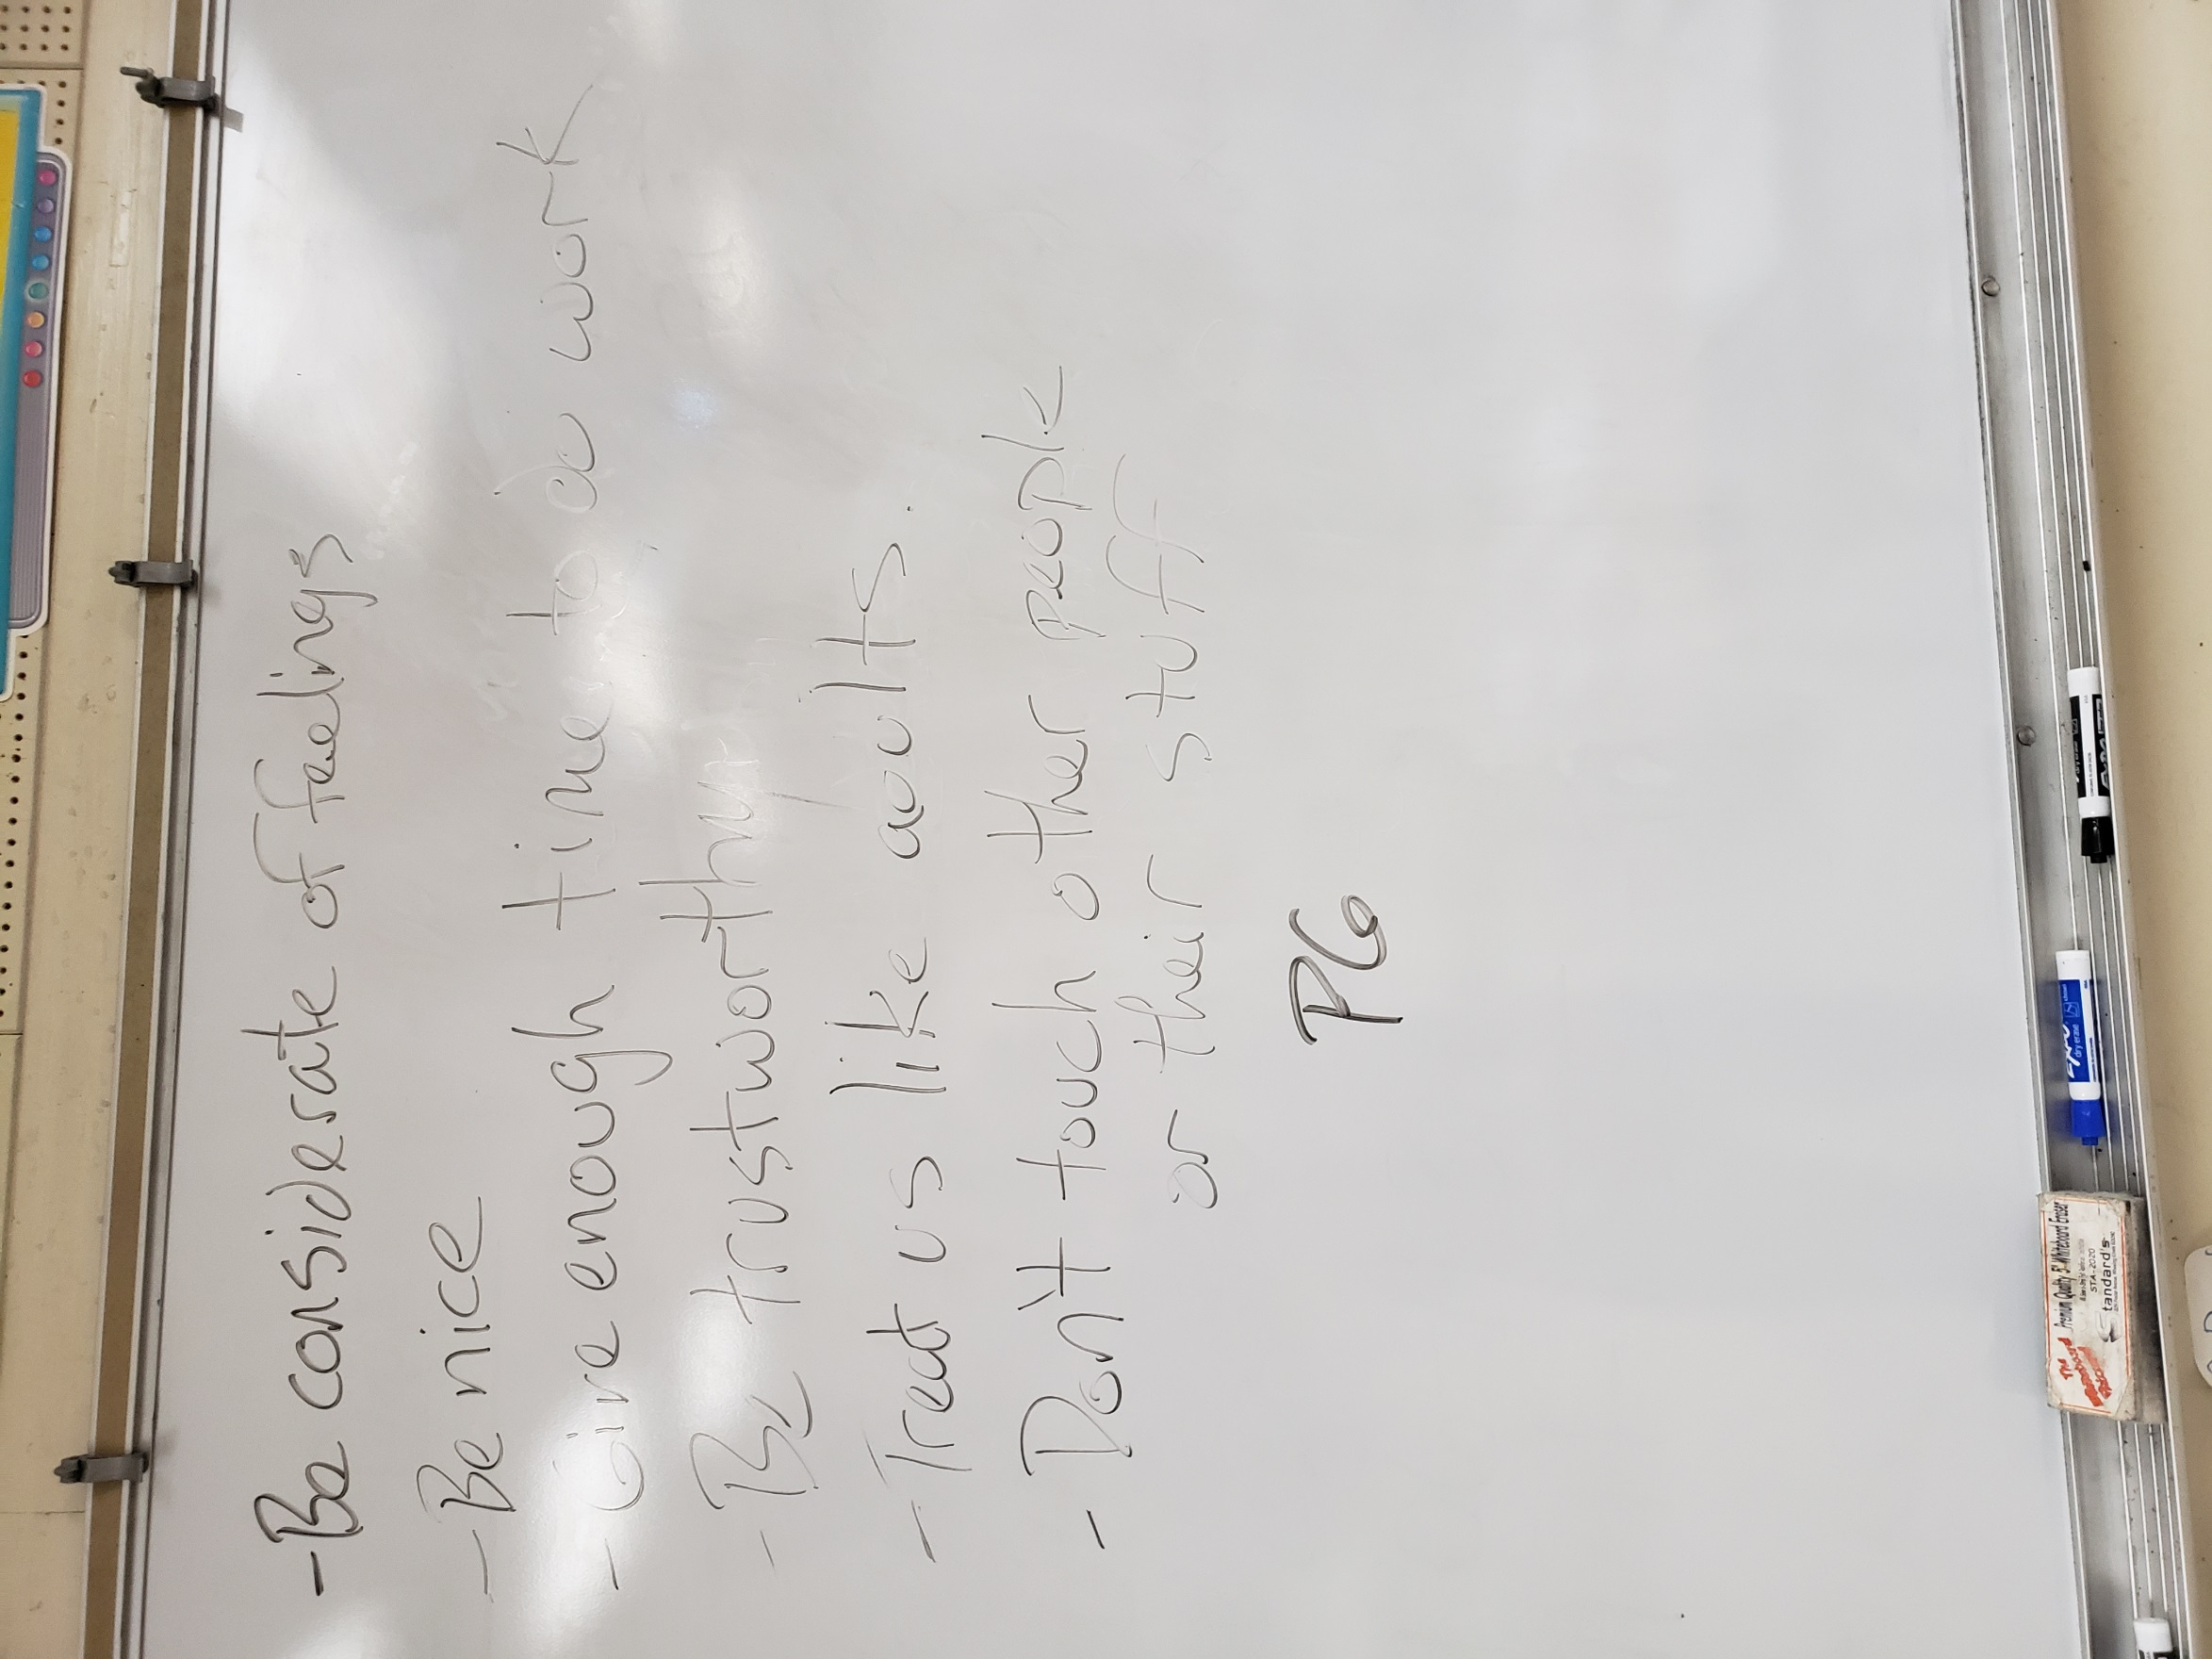 - Be considerate of feelings
- Be nice
- Give enough time to do work
- Be trustworthy
- Treat us like adults.
- Don't touch other people
or their stuff
P6
EXPO
dry erase
EXPO
dry erase
The
Premium Quality 5" Whiteboard Eraser
STA-2020
Standard's